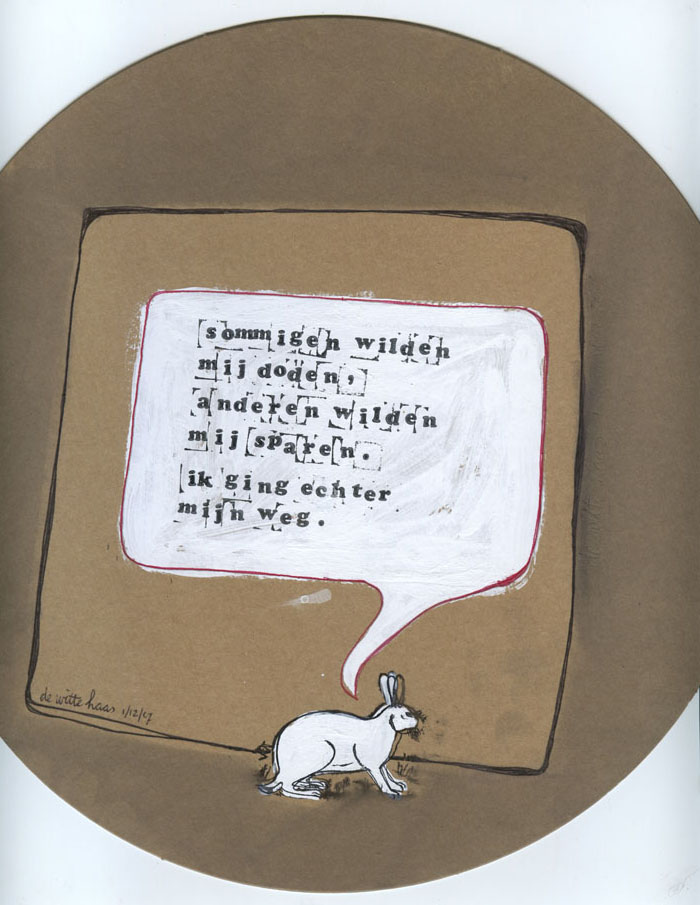 sommigen wilden
mij doden,
anderen wilden
mij sparen.
ik ging echter
mijn weg.
de witte haas 1/12/07